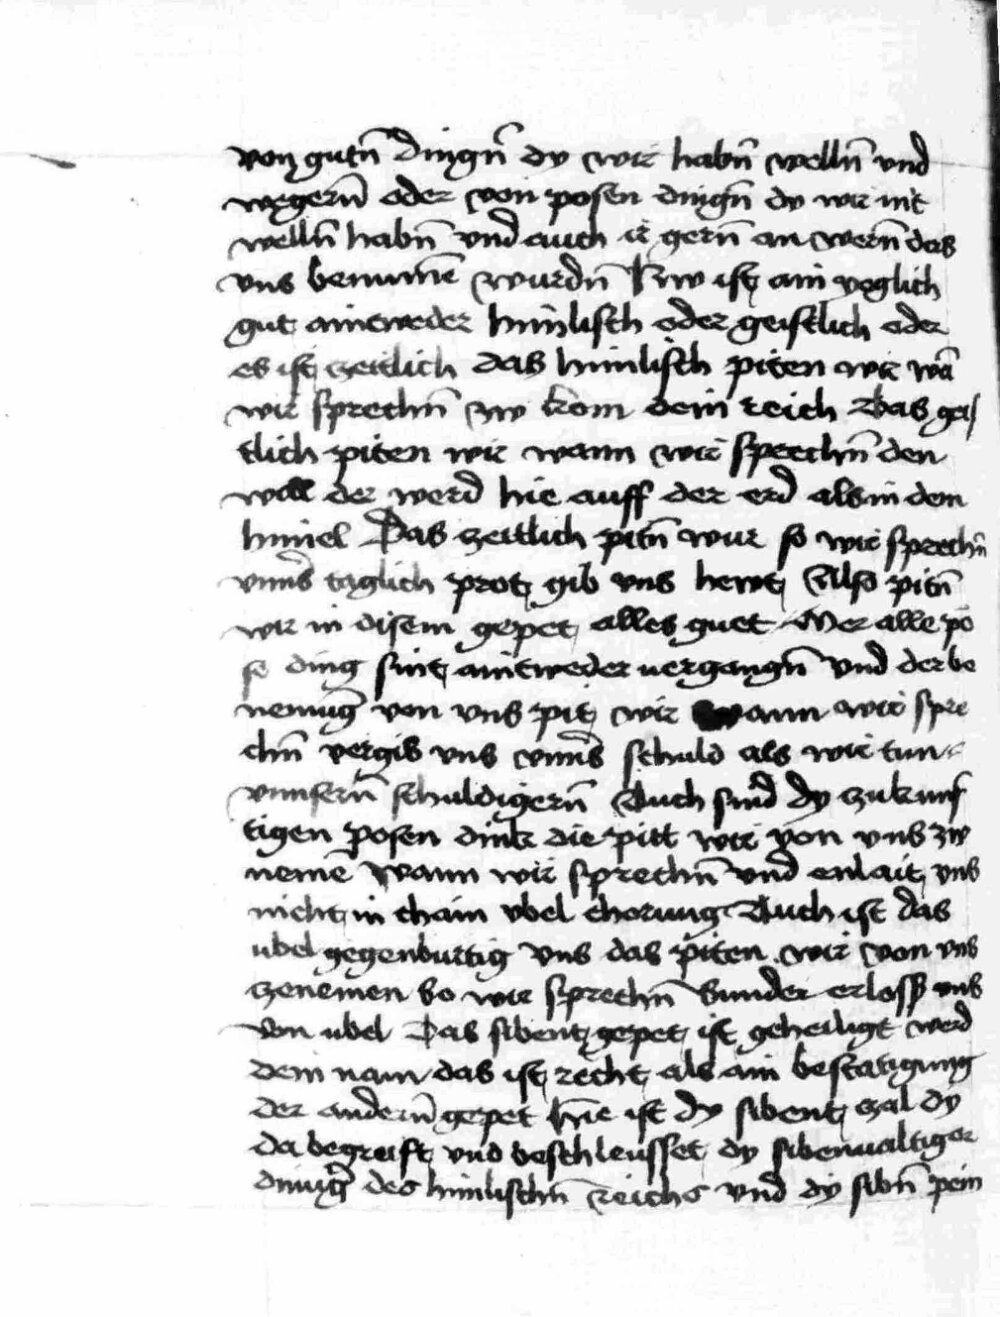 von gutn̄ dingn̄ dy wir habn̄ welln̄ vnd
wegern̄ oder von posen dingn̄ dy wir nit
welln̄ habn̄ vnd auch ir gern̄ an wern̄ das
vns benumē wurdn̄ Nw ist ain yeglich
gut aintweder himlisch oder geistlich oder
es ist zeitlich das himlisch piten wir wā
wir sprechn̄ zw kom dein reich Das geis
tlich piten wir wann wir sprechn̄ den
will der werd hie auff der erd als in dem
himel Das zeitlich pitn̄ wir so wir sprechn̄
vnns taglich prot gib vns hewt Also pitn̄
wir in disem gepet alles guet Mer alle po
se ding sint aintweder vergangn̄ vnd der be
nemūg von vns pit wir wann wir spre
chn̄ vergib vns vnns schuld als wir tun
vnnsern̄ schuldigern̄ Auch sind dy zukunf
tigen posen dink die pitt wir von vns zw
nemē wann wir sprechn̄ vnd enlait vns
nicht in chain vbel chorung Auch ist das
ubel gegenburtig vns das piten wir von vns
zenemen so wir sprechn̄ Sunder erloss vns
von ubel Das sibent gepet ist geheiligt werd
dein nam das ist recht als ain bestatigung
der andern̄ gepet hie ist dy sibent zal dy
da begreift vnd beschleusset dy sibenualtiger
dinūg des himlischn̄ reichs vnd dy sibn̄ pein